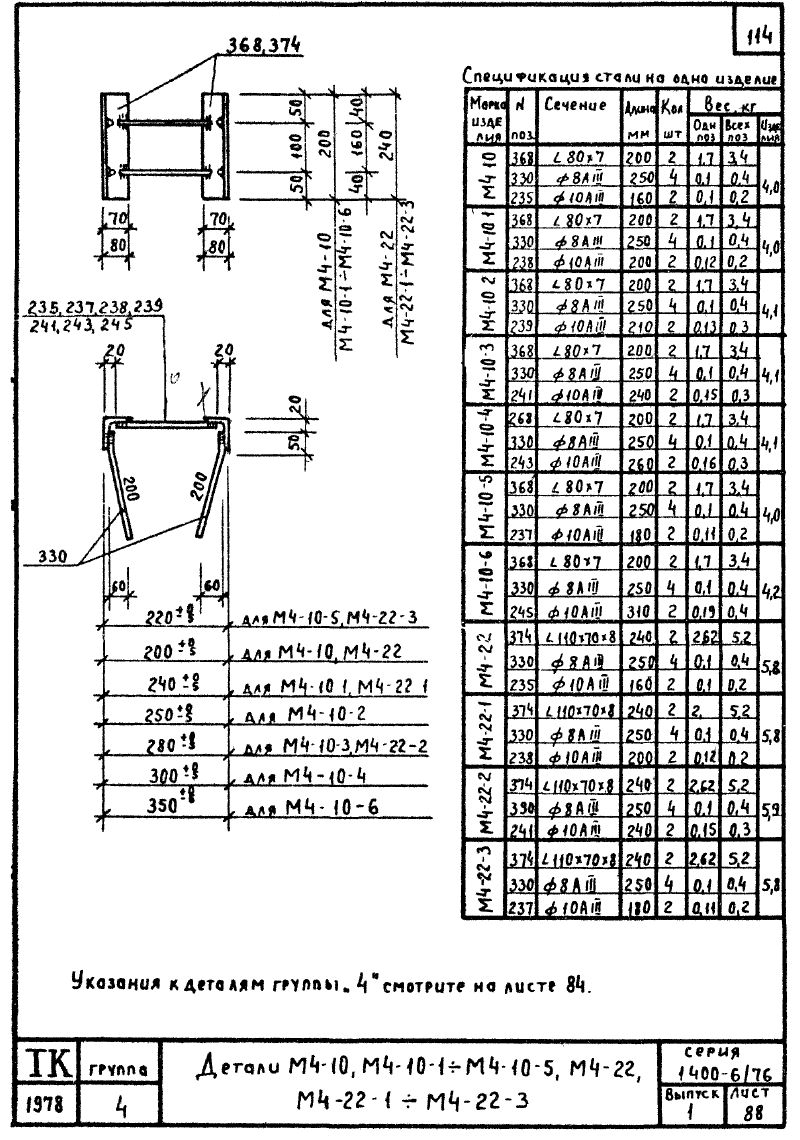 114
368,374
50
100
50
200
40
160
40
240
70
80
70
80
для М4-10
М4-10-1÷М4-10-6
для М4-22
М4-22-1÷М4-22-3
235,237,238,239
241,243,245
20
20
20
50
200
200
330
60
60
220 ±0 5 для М4-10-5,М4-22-3
200 ±0 5 для М4-10, М4-22
240 ±0 5 для М4-10 1, М4-22 1
250 ±0 5 для М4-10-2
280 ±0 5 для М4-10-3,М4-22-2
300 ±0 5 для М4-10-4
350 ±0 8 для М4-10-6
Спецификация стали на одно изделие
Марка изделия N поз. Сечение Длина мм Кол шт Вес, кг
Одн поз Всех поз Изделия
М4 10 368 L 80×7 200 2 1,7 3,4 4,0
330 ф 8АIII 250 4 0,1 0,4
235 ф 10АIII 160 2 0,1 0,2
М4-10-1 368 L 80×7 200 2 1,7 3,4 4,0
330 ф 8АIII 250 4 0,1 0,4
238 ф 10АIII 200 2 0,12 0,2
М4-10 2 368 L 80×7 200 2 1,7 3,4 4,1
330 ф 8АIII 250 4 0,1 0,4
239 ф 10АIII 210 2 0,13 0,3
М4-10-3 368 L 80×7 200 2 1,7 3,4 4,1
330 ф 8АIII 250 4 0,1 0,4
241 ф 10АIII 240 2 0,15 0,3
М4-10-4 268 L 80×7 200 2 1,7 3,4 4,1
330 ф 8АIII 250 4 0,1 0,4
243 ф 10АIII 260 2 0,16 0,3
М4-10-5 368 L 80×7 200 2 1,7 3,4 4,0
330 ф 8АIII 250 4 0,1 0,4
237 ф 10АIII 180 2 0,11 0,2
М4-10-6 368 L 80×7 200 2 1,7 3,4 4,2
330 ф 8АIII 250 4 0,1 0,4
245 ф 10АIII 310 2 0,19 0,4
М4-22 374 L 110×70×8 240 2 2,62 5,2 5,8
330 ф 8АIII 250 4 0,1 0,4
235 ф 10АIII 160 2 0,1 0,2
М4-22-1 374 L 110×70×8 240 2 2, 5,2 5,8
330 ф 8АIII 250 4 0,1 0,4
238 ф 10АIII 200 2 0,12 0,2
М4-22-2 374 L 110×70×8 240 2 2,62 5,2 5,9
390 ф 8АIII 250 4 0,1 0,4
241 ф 10АIII 240 2 0,15 0,3
М4-22-3 374 L 110×70×8 240 2 2,62 5,2 5,8
330 ф 8АIII 250 4 0,1 0,4
237 ф 10АIII 180 2 0,11 0,2
Указания к деталям группы „4" смотрите на листе 84.
ТК
1978
группа
4
Детали М4-10, М4-10-1÷М4-10-5, М4-22,
М4-22-1÷М4-22-3
серия
1400-6/76
Выпуск
1
Лист
88